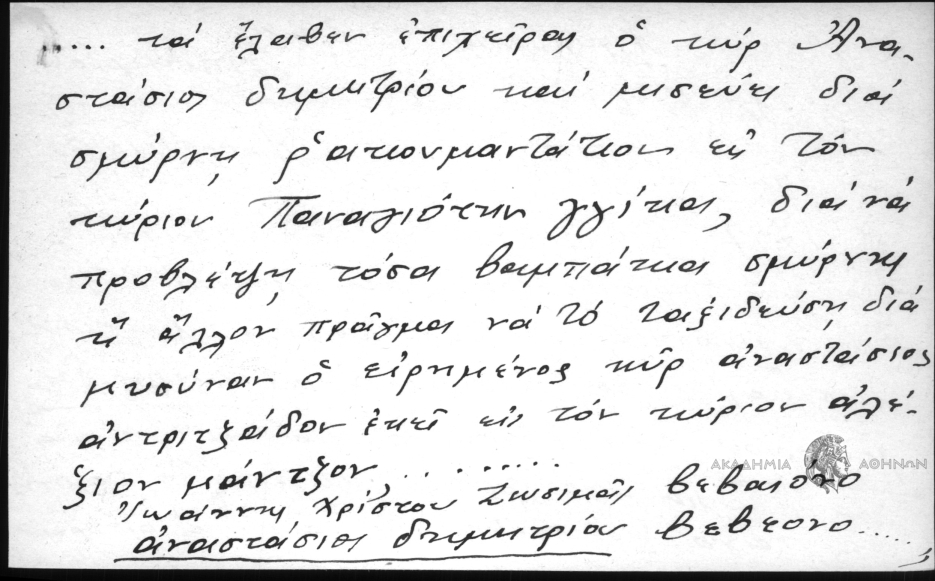 ..... τά ἔλαβεν ἐπιχείρας ὁ κύρ Ἀνα-
στάσιος δημητρίου καί μισεύει διά
σμύρνη, ῥακουμαντάτιον εἰς τόν
κύριον Παναγιότην γγίκαι, διά νά
προβλέψῃ τόσα βαμπάκια σμύρνης
ἤ ἄλλον πρᾶγμαι νά τό ταξιδεύσῃ, διά
μυσύναν ὁ εἰρημένος κῦρ ἀναστάσιος
ἀντριτζαίδον ἐκεῖ εἰς τόν κύριον ἀλέ-
ξιον μάντζον, . . . . . . . .
Ἰωάννης Χρίστου Ζωσιμᾶς βεβαιόνο
ἀναστάσιος δημητρίου βεβεονο.....
ΑΚΑΔΗΜΙΑ ΑΘΗΝΩΝ